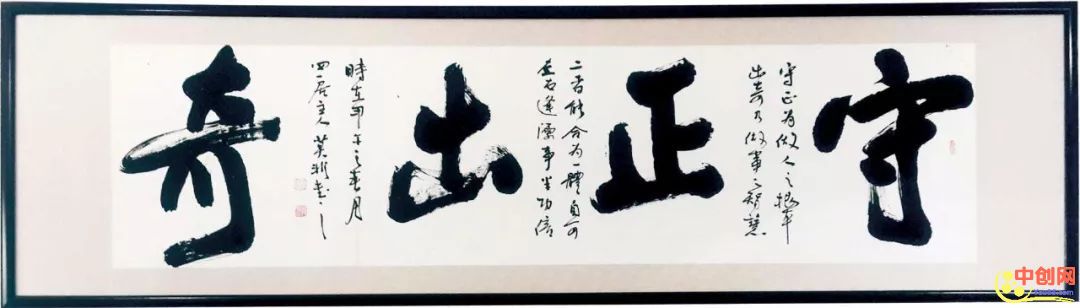 守正出奇
守正为做人之根本
出奇乃做事之智慧
二者能合为一體自可
左右逢源事半功倍
時在甲午之春月
主人
中创网